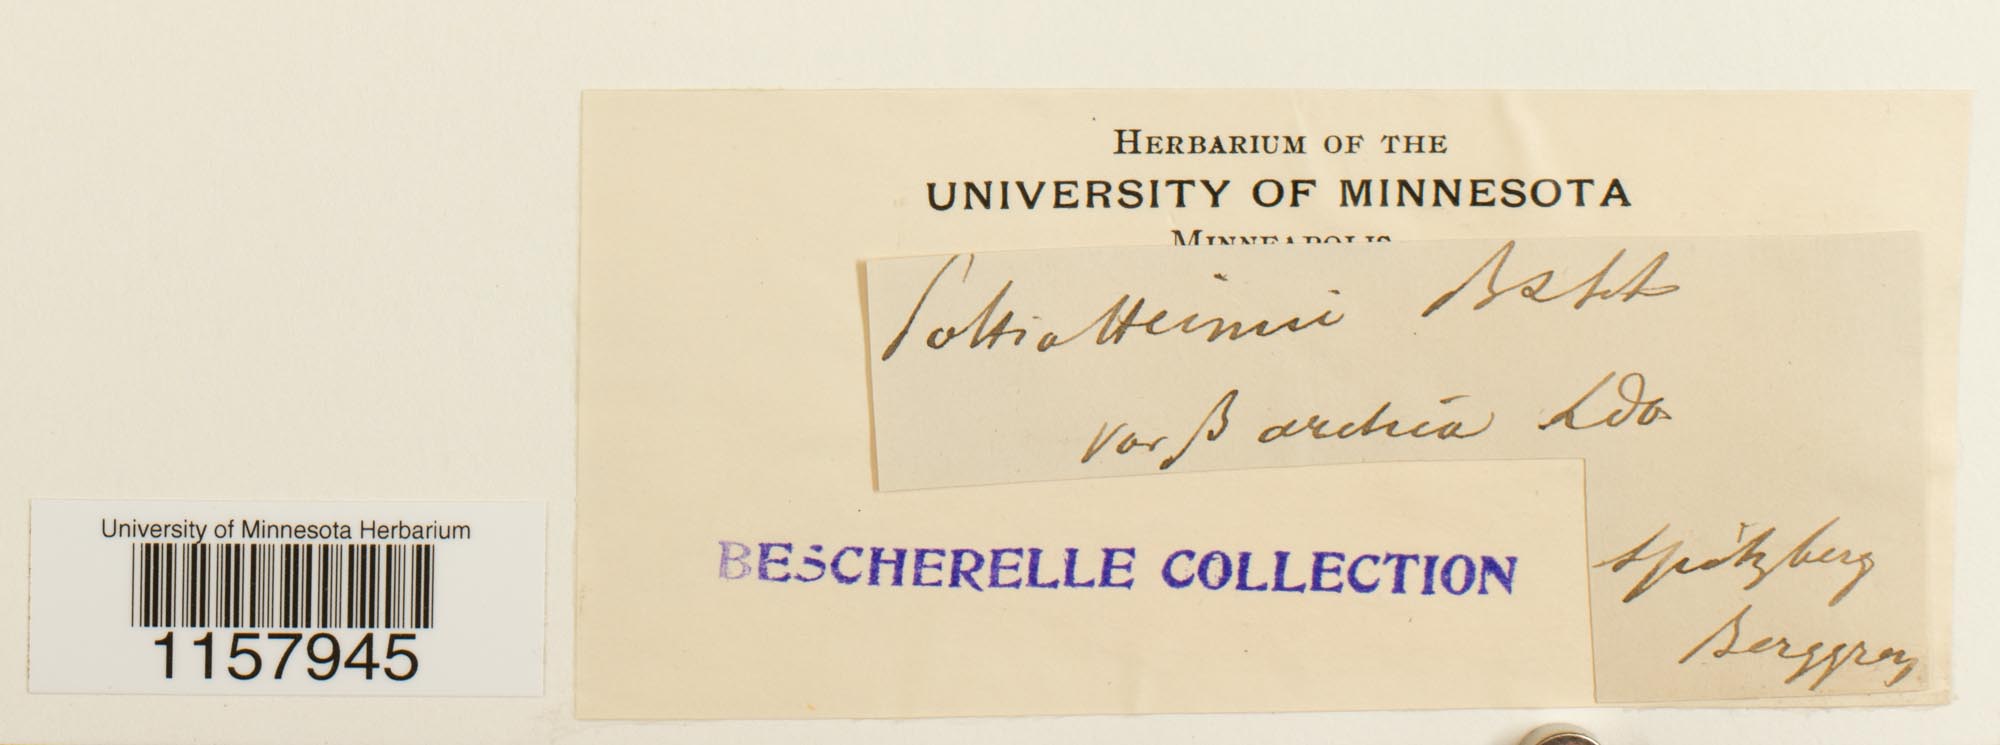 HERBARIUM OF THE
UNIVERSITY OF MINNESOTA
MINNEAPOLIS
Pottia Heimii
var β arctica Ldo
BESCHERELLE COLLECTION
Spitzberg
Berggren
University of Minnesota Herbarium
1157945